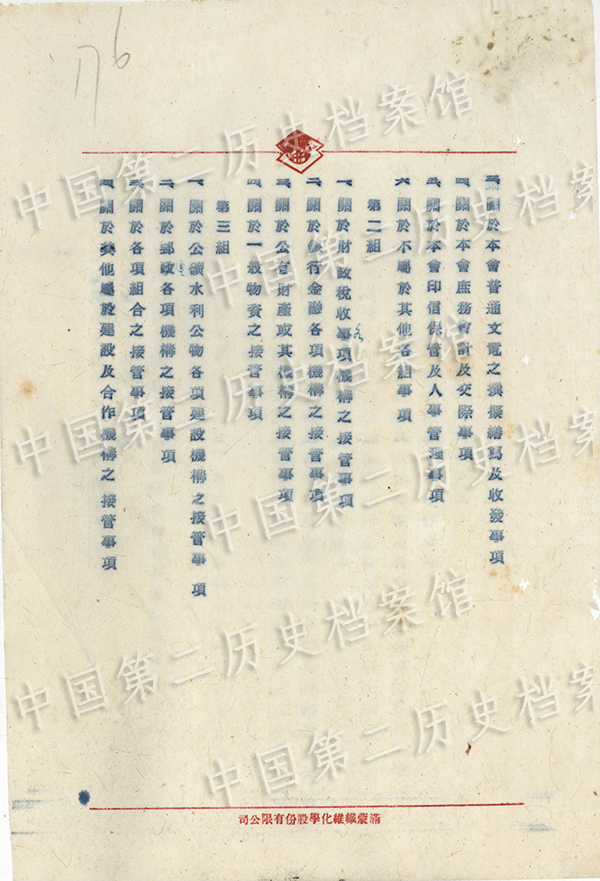 76
三、關於本會普通文電之撰擬繕寫及收發事項
四、關於本會庶務會計及交際事項
五、關於本會印信保管及人事管理事項
六、關於不屬於其他各組事項
第二組
一、關於財政稅收各事項機構之接管事項
二、關於銀行金融各項機構之接管事項
三、關於公有財產或其機構之接管事項
四、關於一般物資之接管事項
第三組
一、關於公礦水利公物各項建設機構之接管事項
二、關於郵政各項機構之接管事項
三、關於各項組合之接管事項
四、關於其他屬於建設及合作機構之接管事項
司公限有份股學化維纖蒙滿
中国第二历史档案馆
中国第二历史档案馆
中国第二历史档案馆
中国第二历史档案馆
中国第二历史档案馆
中国第二历史档案馆